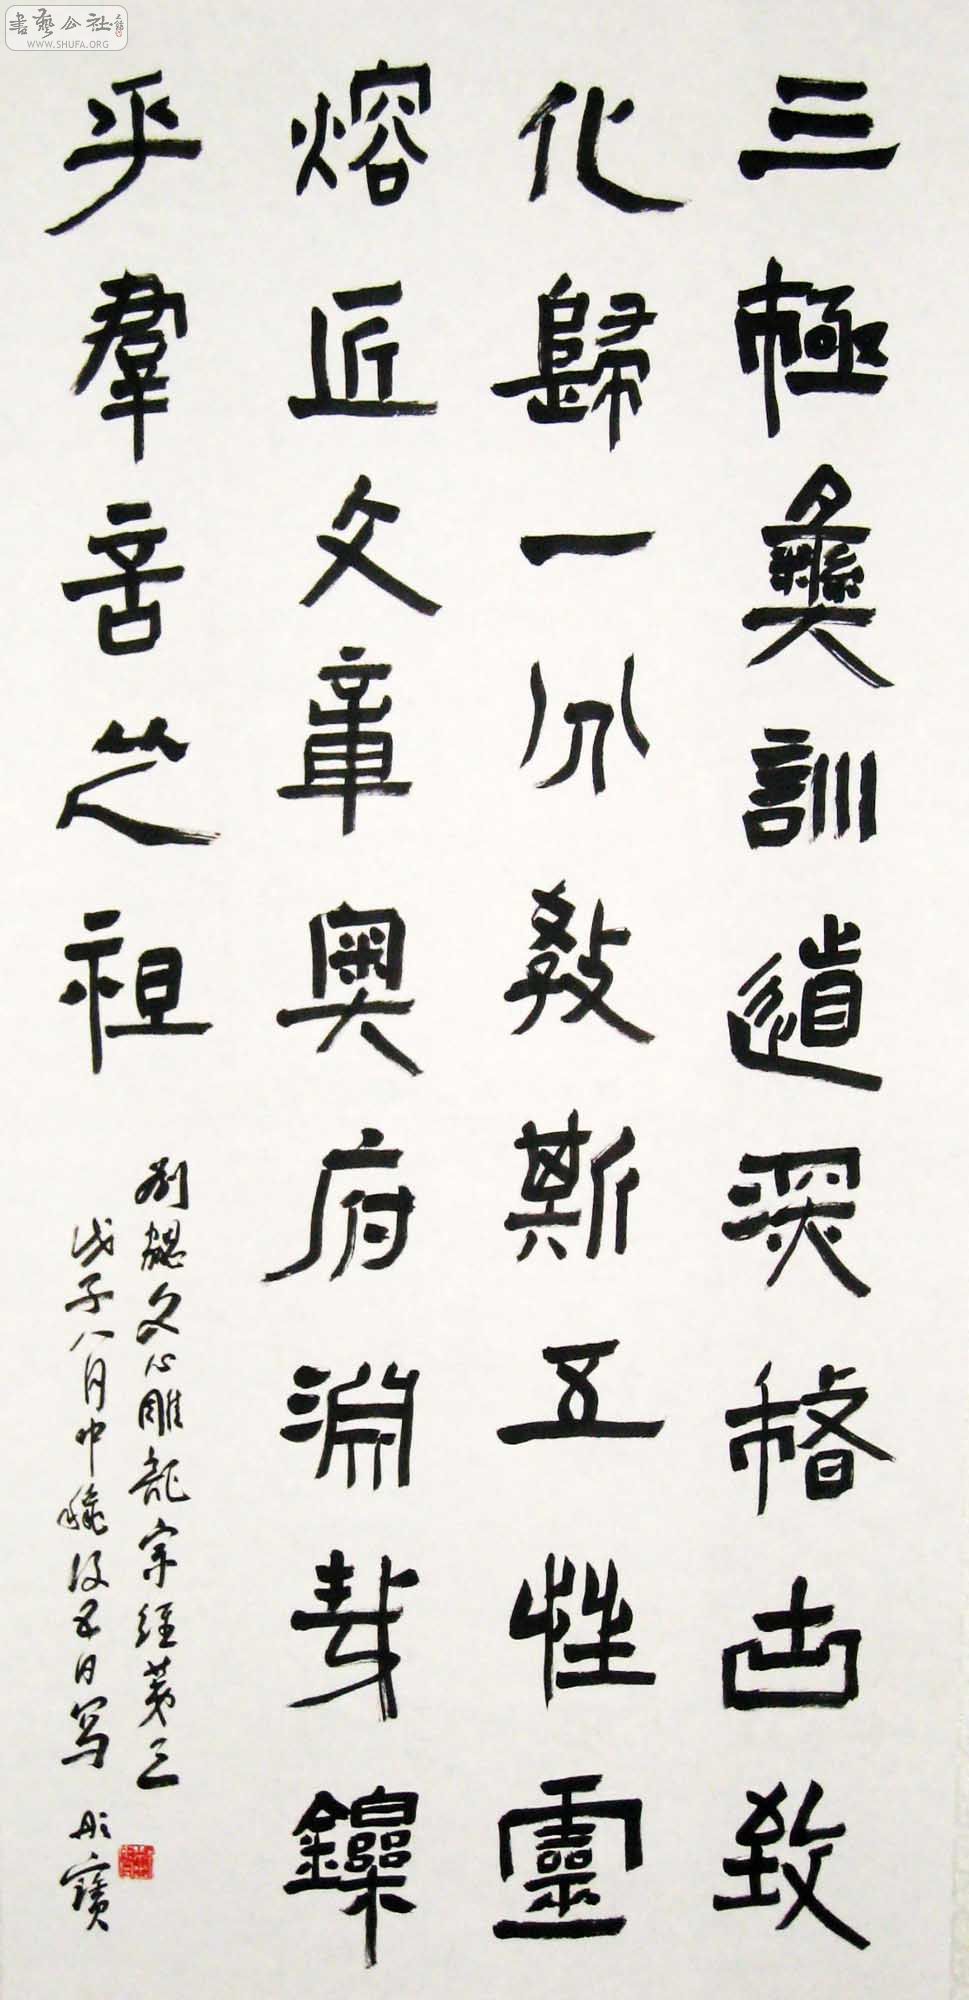 三極彝訓道深稽古致
化歸一分教斯五性靈
熔匠文章奧府淵哉鑠
乎羣言之祖
劉勰文心雕龍宗經第三
戊子八月中穐後五日写 彤寶
書藝公社
WWW.SHUFA.ORG